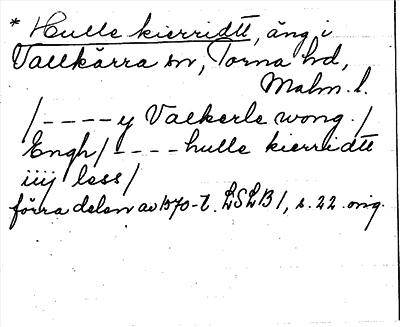 * Hulle kierridtt, äng i
Vallkärra sn, Torna hd,
Malm. l.
/ - - - - y Valkerle wong. /
Engh / - - - - hulle kierridtt
iiij less /
förra delen av 1570-t. LSLB 1, s. 22. orig.